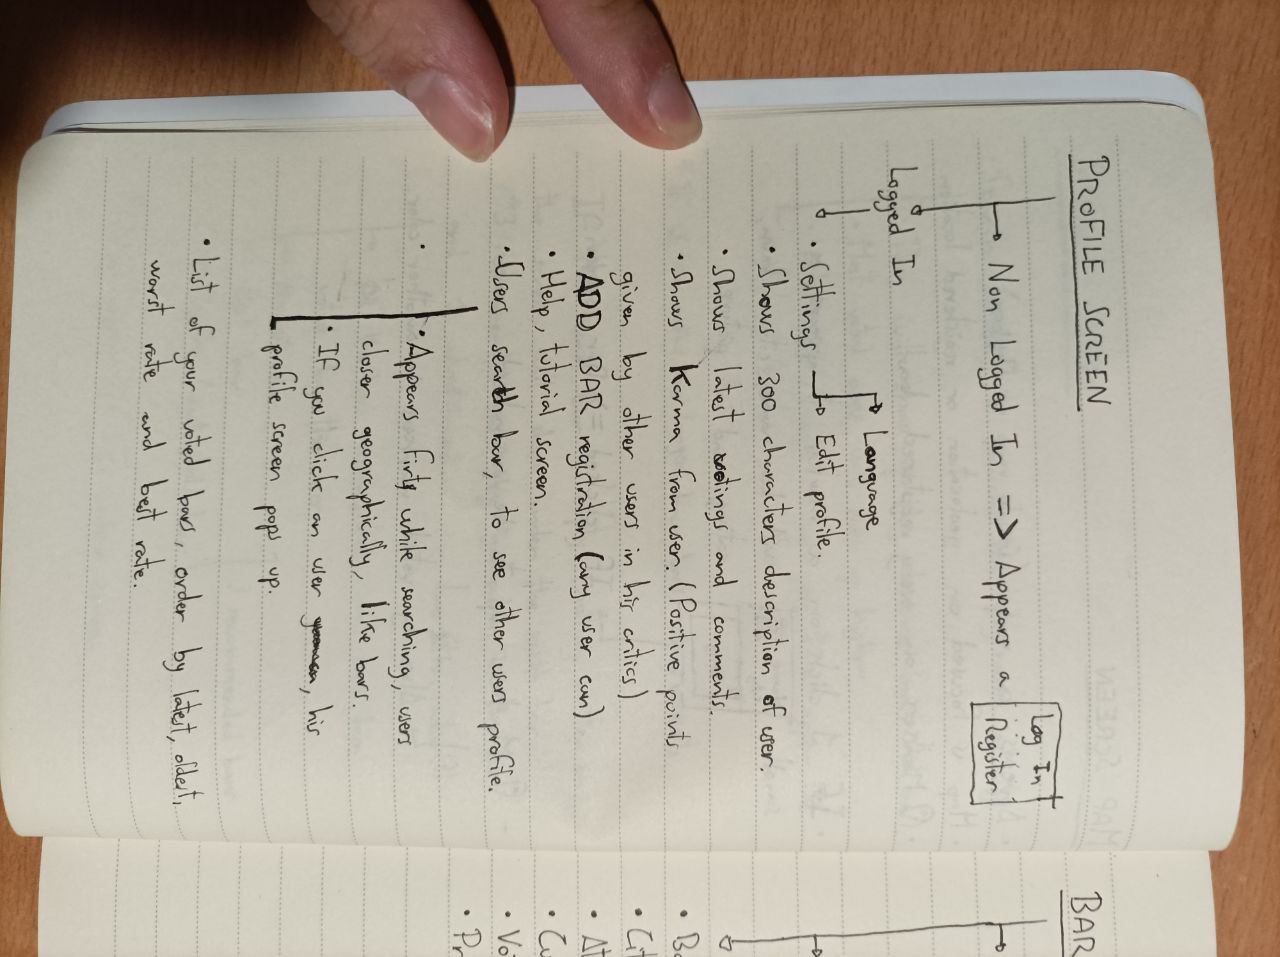 PROFILE SCREEN
Non Logged In => Appears a
Log In
Register
Logged In
Language
• Settings
Edit profile.
• Shows 300 characters description of user.
• Shows latest votings and comments.
• Shows Karma from user. (Positive points
given by other users in his critics)
• ADD BAR registration (any user can)
• Help, tutorial screen.
• Users search bar, to see other users profile.
• Appears firty while searching, users
closer geographically, like bars.
• If you click an user, his
profile screen pops up.
• List of your voted bars, order by latest, oldest,
worst rate and best rate.
BAR
• Ba
• Cit
• At
• Cu
• Vo
• Pr